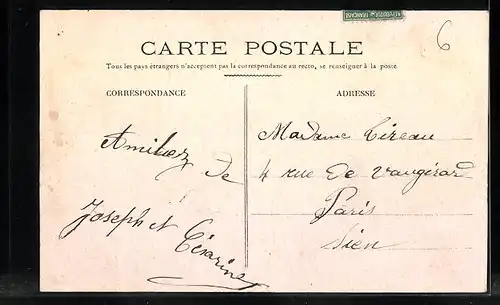 RÉPUBLIQUE FRANÇAISE
6
CARTE POSTALE
Tous les pays étrangers n'acceptent pas la correspondance au recto, se renseigner à la poste
CORRESPONDANCE
ADRESSE
Amitiez
de
Joseph et
Césarine
Madame Cizeau
4 rue De Vaugirard
Paris
Sien